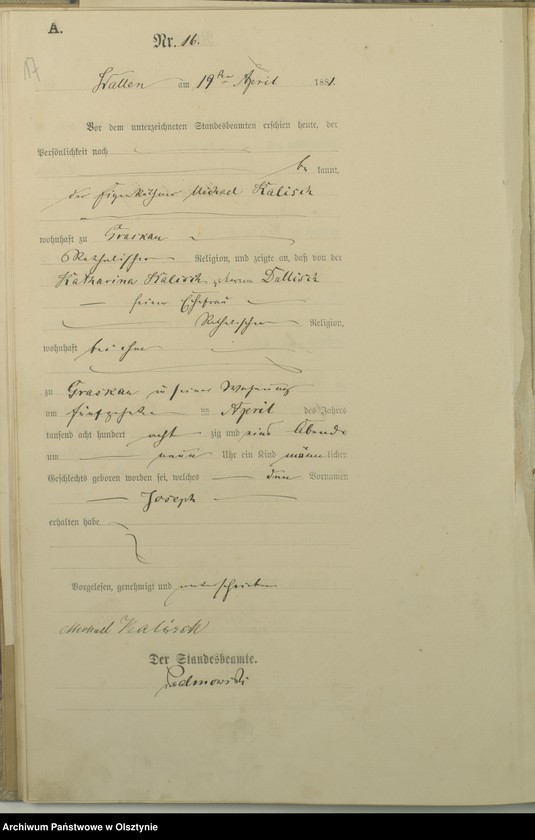 A.
Nr. 16.
17
Wallen am 19ten April 1881.
Vor dem unterzeichneten Standesbeamten erschien heute, der
Persönlichkeit nach
be kannt,
der Eigenkäthner Michael Kalisch
wohnhaft zu Graskau
Katholischer Religion, und zeigte an, daß von der
Katharina Kalisch geborenen Dallisch
seiner Ehefrau
Katholischer Religion,
wohnhaft bei ihm
zu Graskau in seiner Wohnung
am fünfzehnten im April des Jahres
tausend acht hundert acht zig und eins Abends
um neun Uhr ein Kind männlichen
Geschlechts geboren worden sei, welches den Vornamen
Joseph
erhalten habe.
Vorgelesen, genehmigt und unterschrieben
Michael Kalisch
Der Standesbeamte.
Archiwum Państwowe w Olsztynie